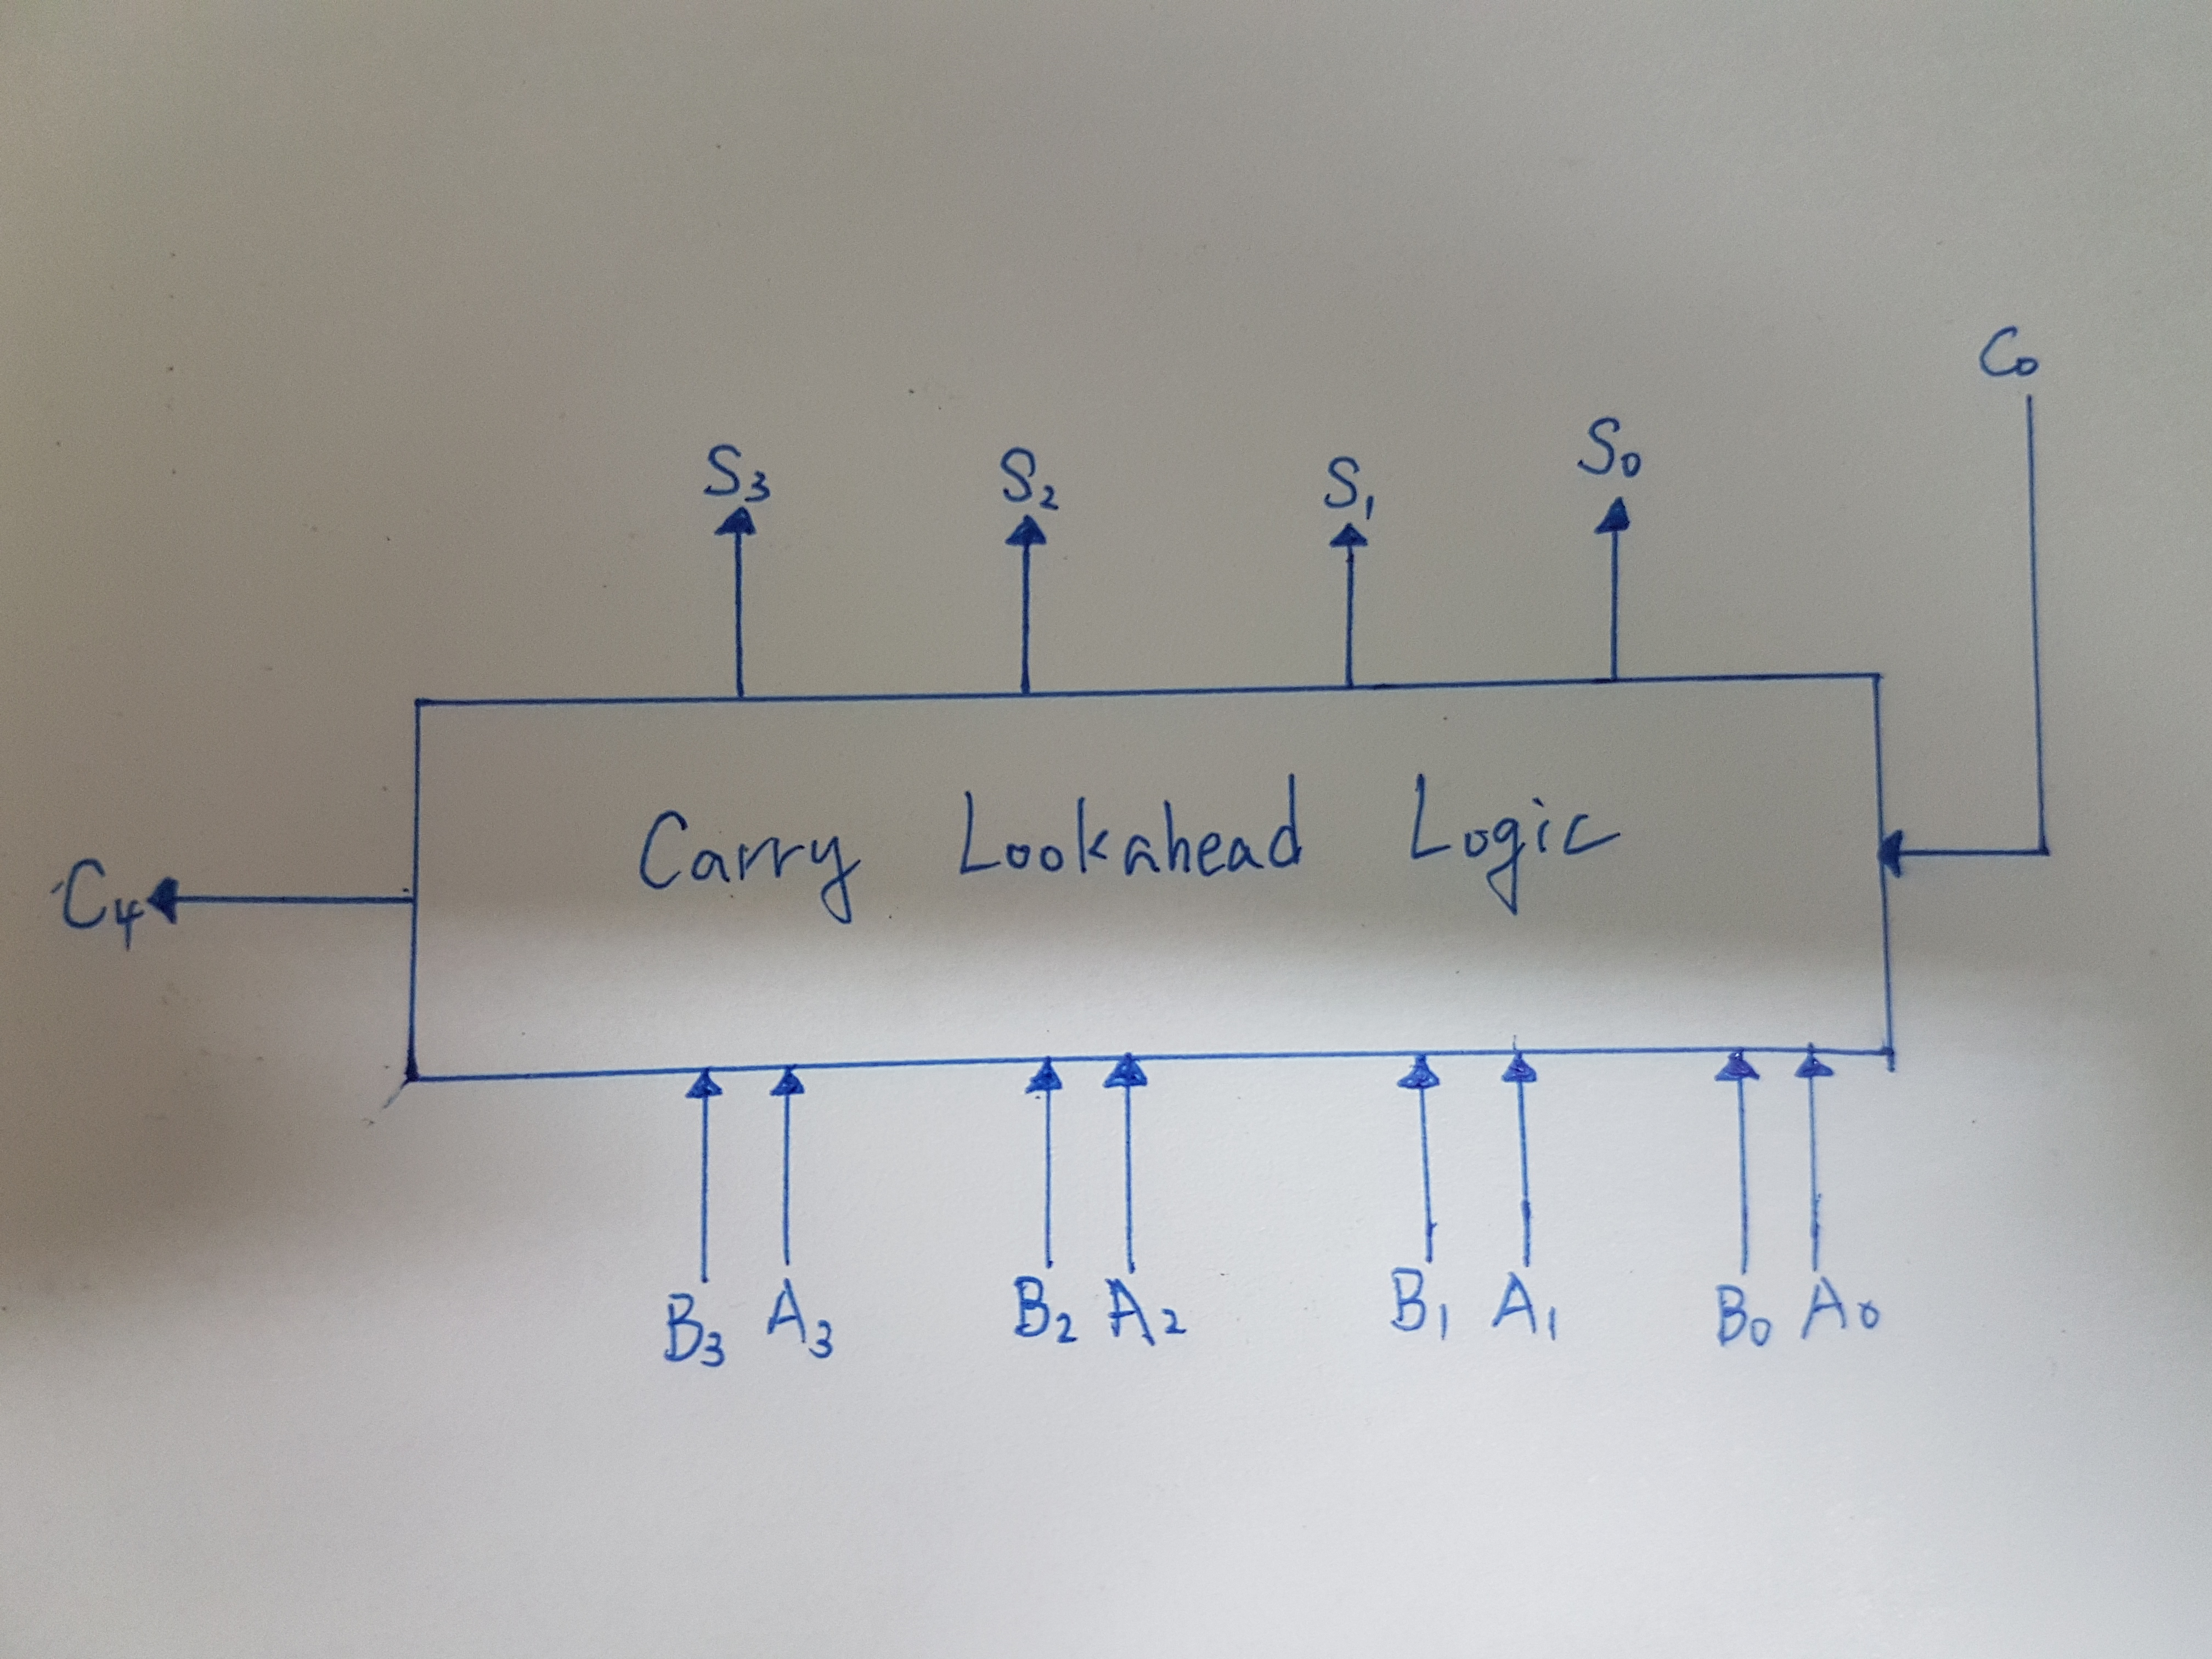 C₀
S₃ S₂ S₁ S₀
Carry Lookahead Logic
C₄
B₃ A₃ B₂ A₂ B₁ A₁ B₀ A₀